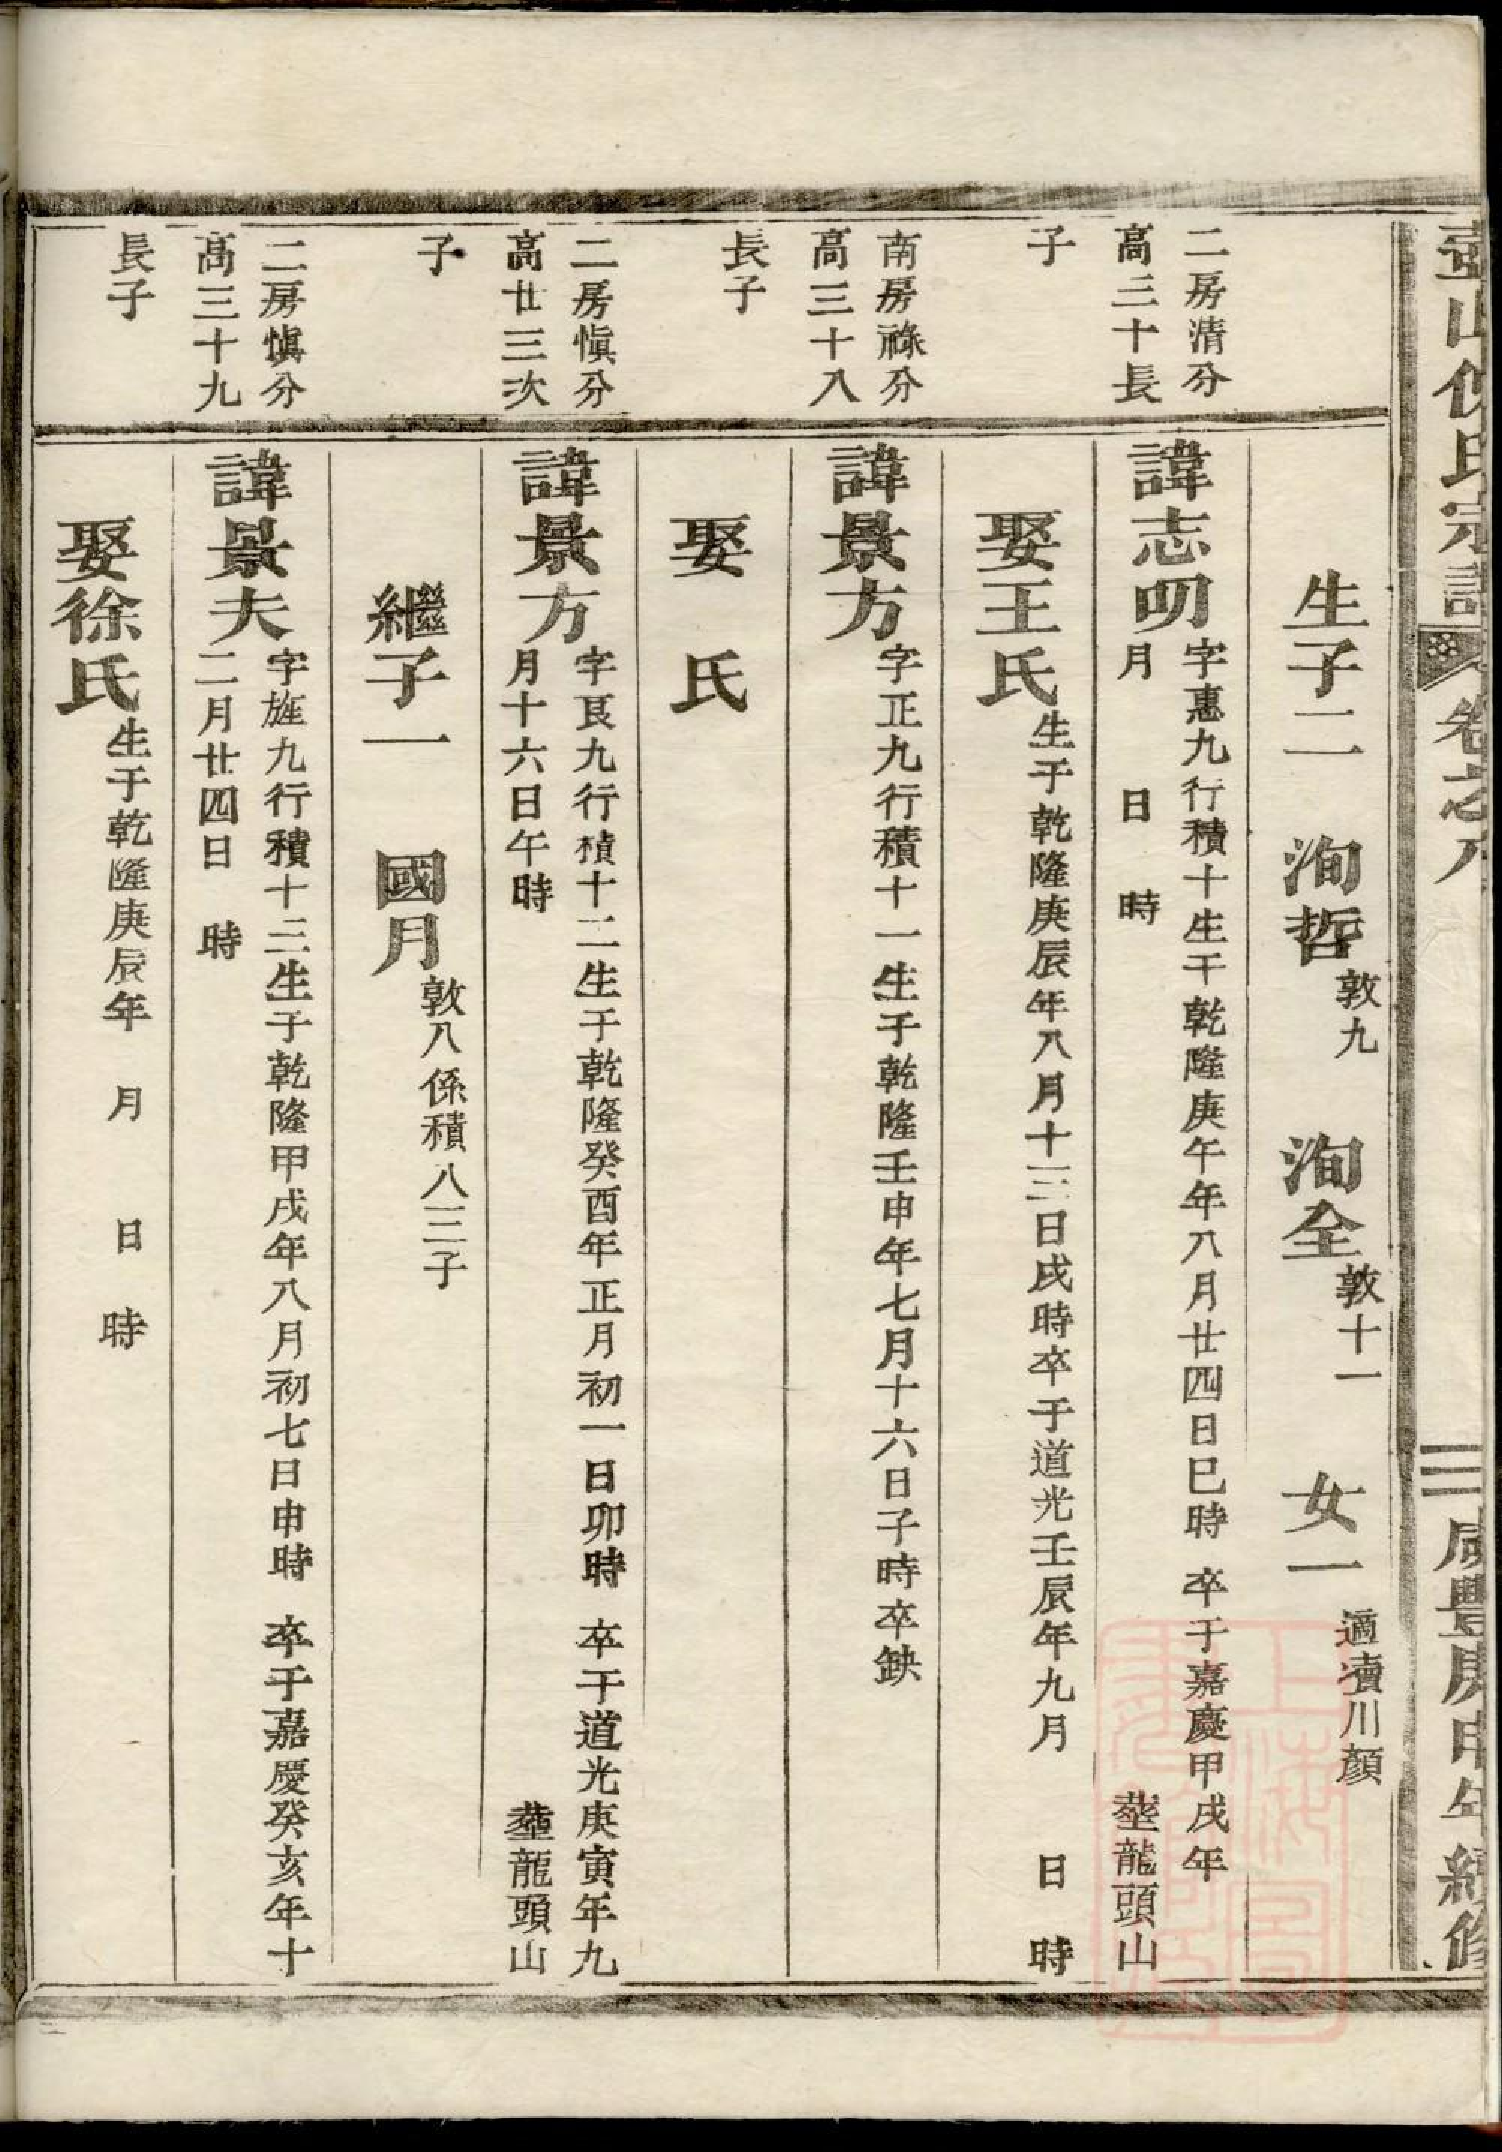 壺山倪氏宗譜 卷之八 三 咸豐庚申年續修
生子二 洵哲敦九 洵全敦十一 女一適瀆川顏
二房清分
高三十長
子
諱志明字惠九行積十生于乾隆庚午年八月廿四日巳時 卒于嘉慶甲戌年
月 日 時 塟龍頭山
娶王氏生于乾隆庚辰年八月十三日戌時卒于道光壬辰年九月 日 時
南房祿分
高三十八
長子
諱景方字正九行積十一生于乾隆壬申年七月十六日子時卒缺
娶 氏
二房愼分
高廿三次
子
諱景方字艮九行積十二生于乾隆癸酉年正月初一日卯時 卒于道光庚寅年九
月十六日午時 塟龍頭山
繼子一 國月敦八係積八三子
二房愼分
高三十九
長子
諱景夫字旌九行積十三生于乾隆甲戌年八月初七日申時 卒于嘉慶癸亥年十
二月廿四日 時
娶徐氏生于乾隆庚辰年 月 日 時